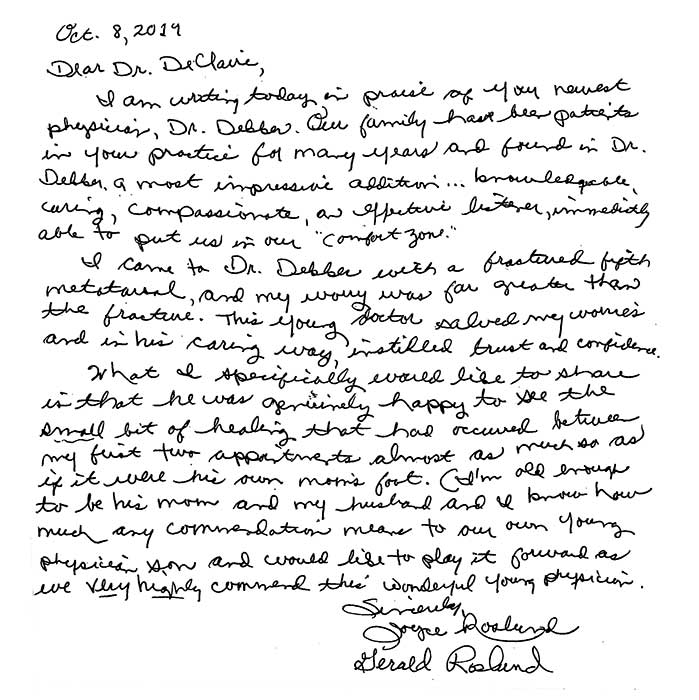 Oct. 8, 2019
Dear Dr. DeClaire,
I am writing today in praise of your newest
physician, Dr. Debber. Our family have been patients
in your practice for many years and found in Dr.
Debber a most impressive addition... knowledgeable,
caring, compassionate, an effective listener, immediately
able to put us in our "comfort zone."
I came to Dr. Debber with a fractured fifth
metatarsal, and my worry was far greater than
the fracture. This young doctor salved my worries
and in his caring way, instilled trust and confidence.
What I specifically would like to share
is that he was genuinely happy to see the
small bit of healing that had occured between
my first two appointments almost as much so as
if it were his own mom's foot. (I'm old enough
to be his mom and my husband and I know how
much any commendation means to our own young
physician son and would like to play it forward as
we very highly commend this wonderful young physician.
Sincerely,
Joyce Roslund
Gerald Roslund